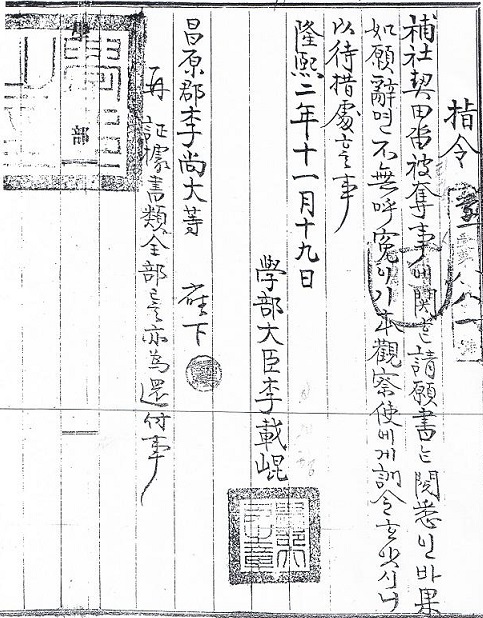 指令
補社契田畓被奪事에關ᄒᆞᆫ請願書ᄂᆞᆫ閱悉인바果
如願辭면不無呼冤이기本觀察使에게訓令ᄒᆞ얏시니
以待措處ᄒᆞᆯ事
隆熙二年十一月十九日
學部大臣李載崐
昌原郡李尚大等 座下
再 証據書類全部 亦為還付事
部